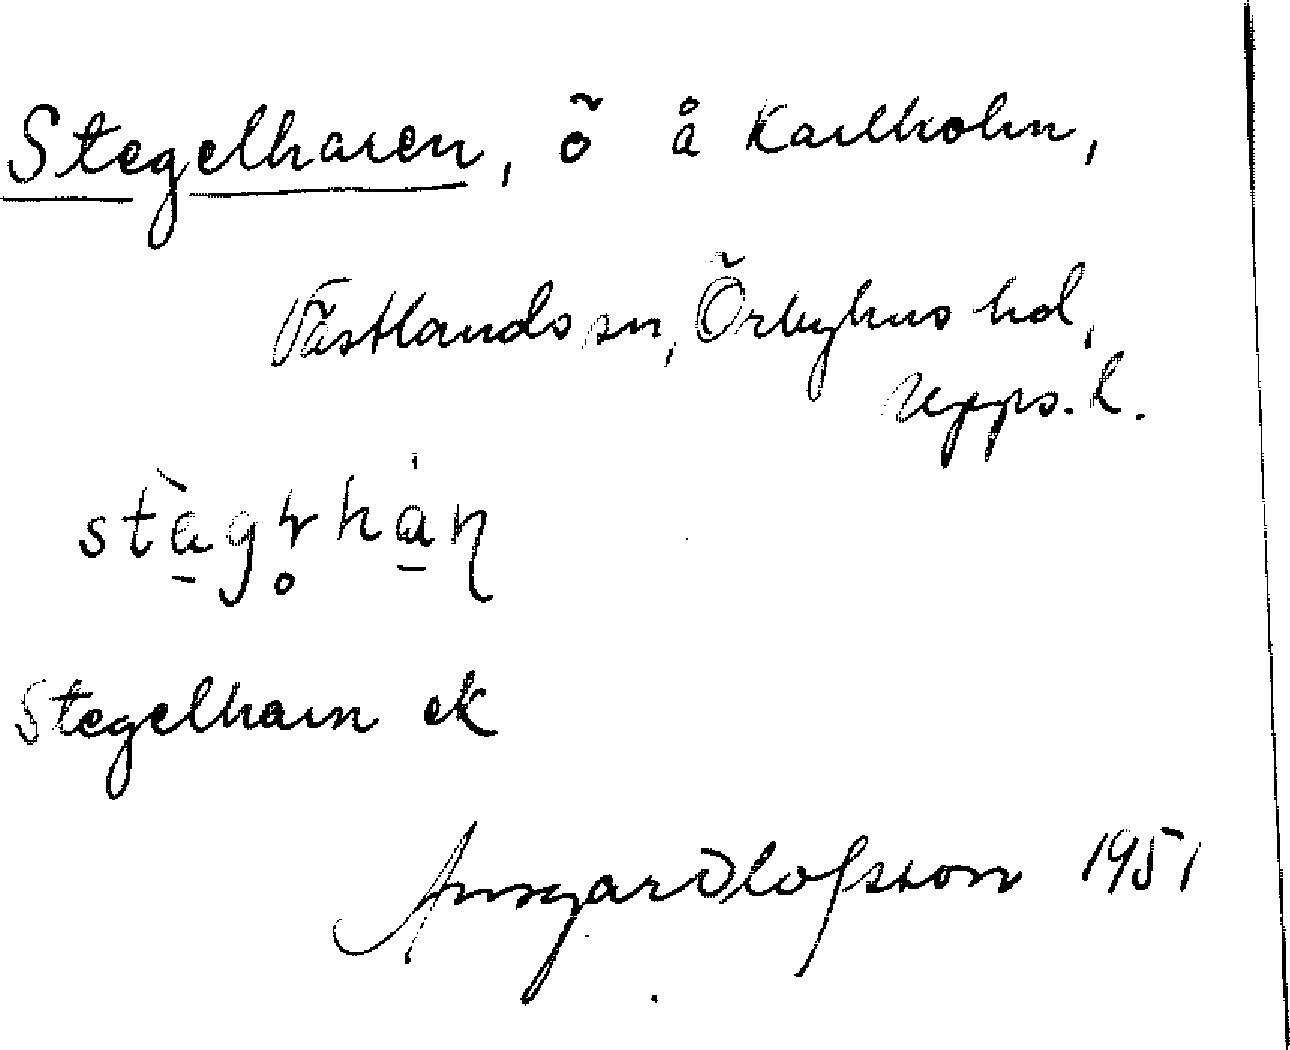 Stegelharen, ö å Karlholm,
Västlands sn, Örbyhus hd,
Upps. l.
Stegelharn ek
Ansgar Olofsson 1951